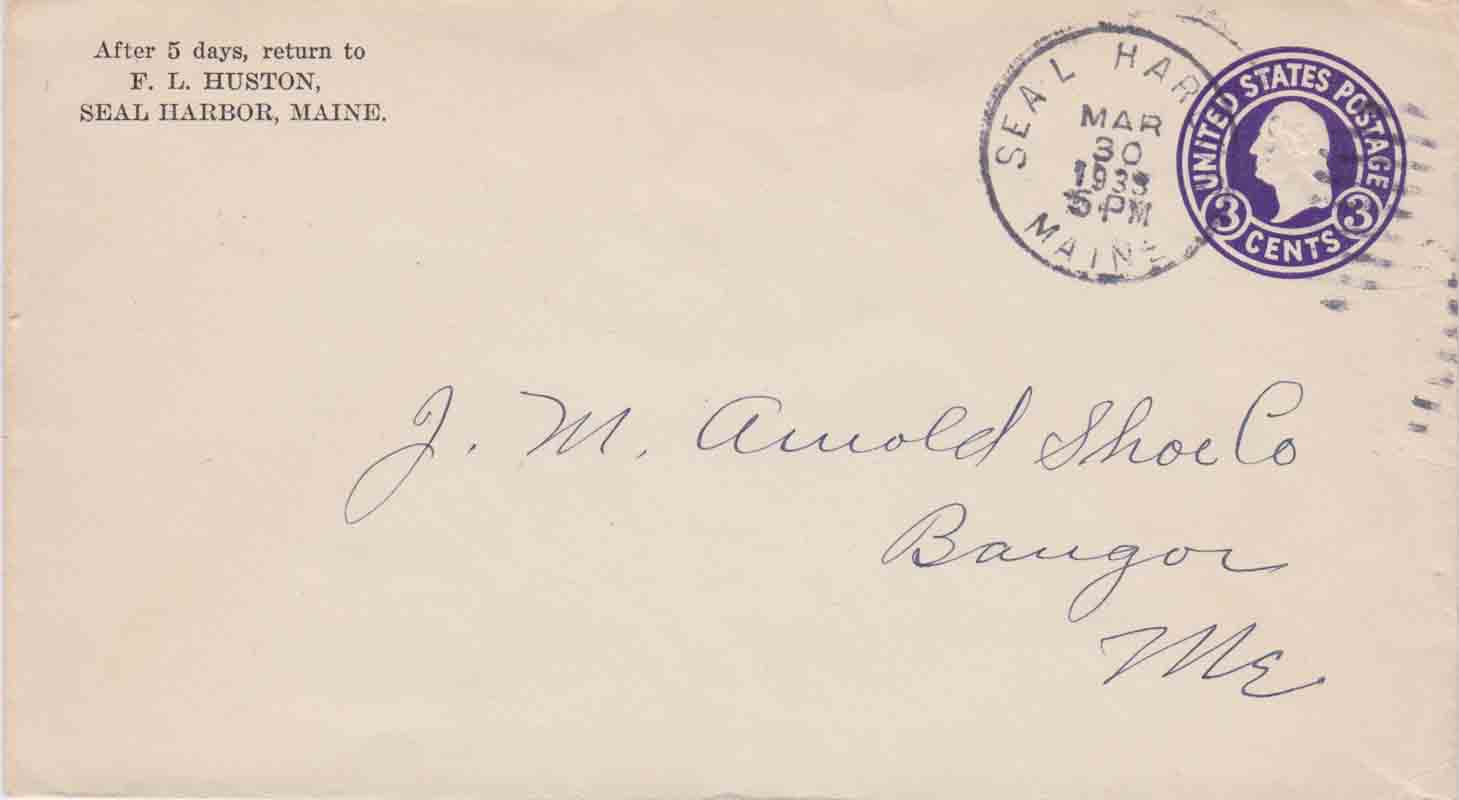 After 5 days, return to
F. L. HUSTON,
SEAL HARBOR, MAINE.
SEAL HAR
MAR
30
5 PM
MAINE
UNITED STATES POSTAGE
3 CENTS 3
J. M. Arnold Shoe Co
Bangor
Me